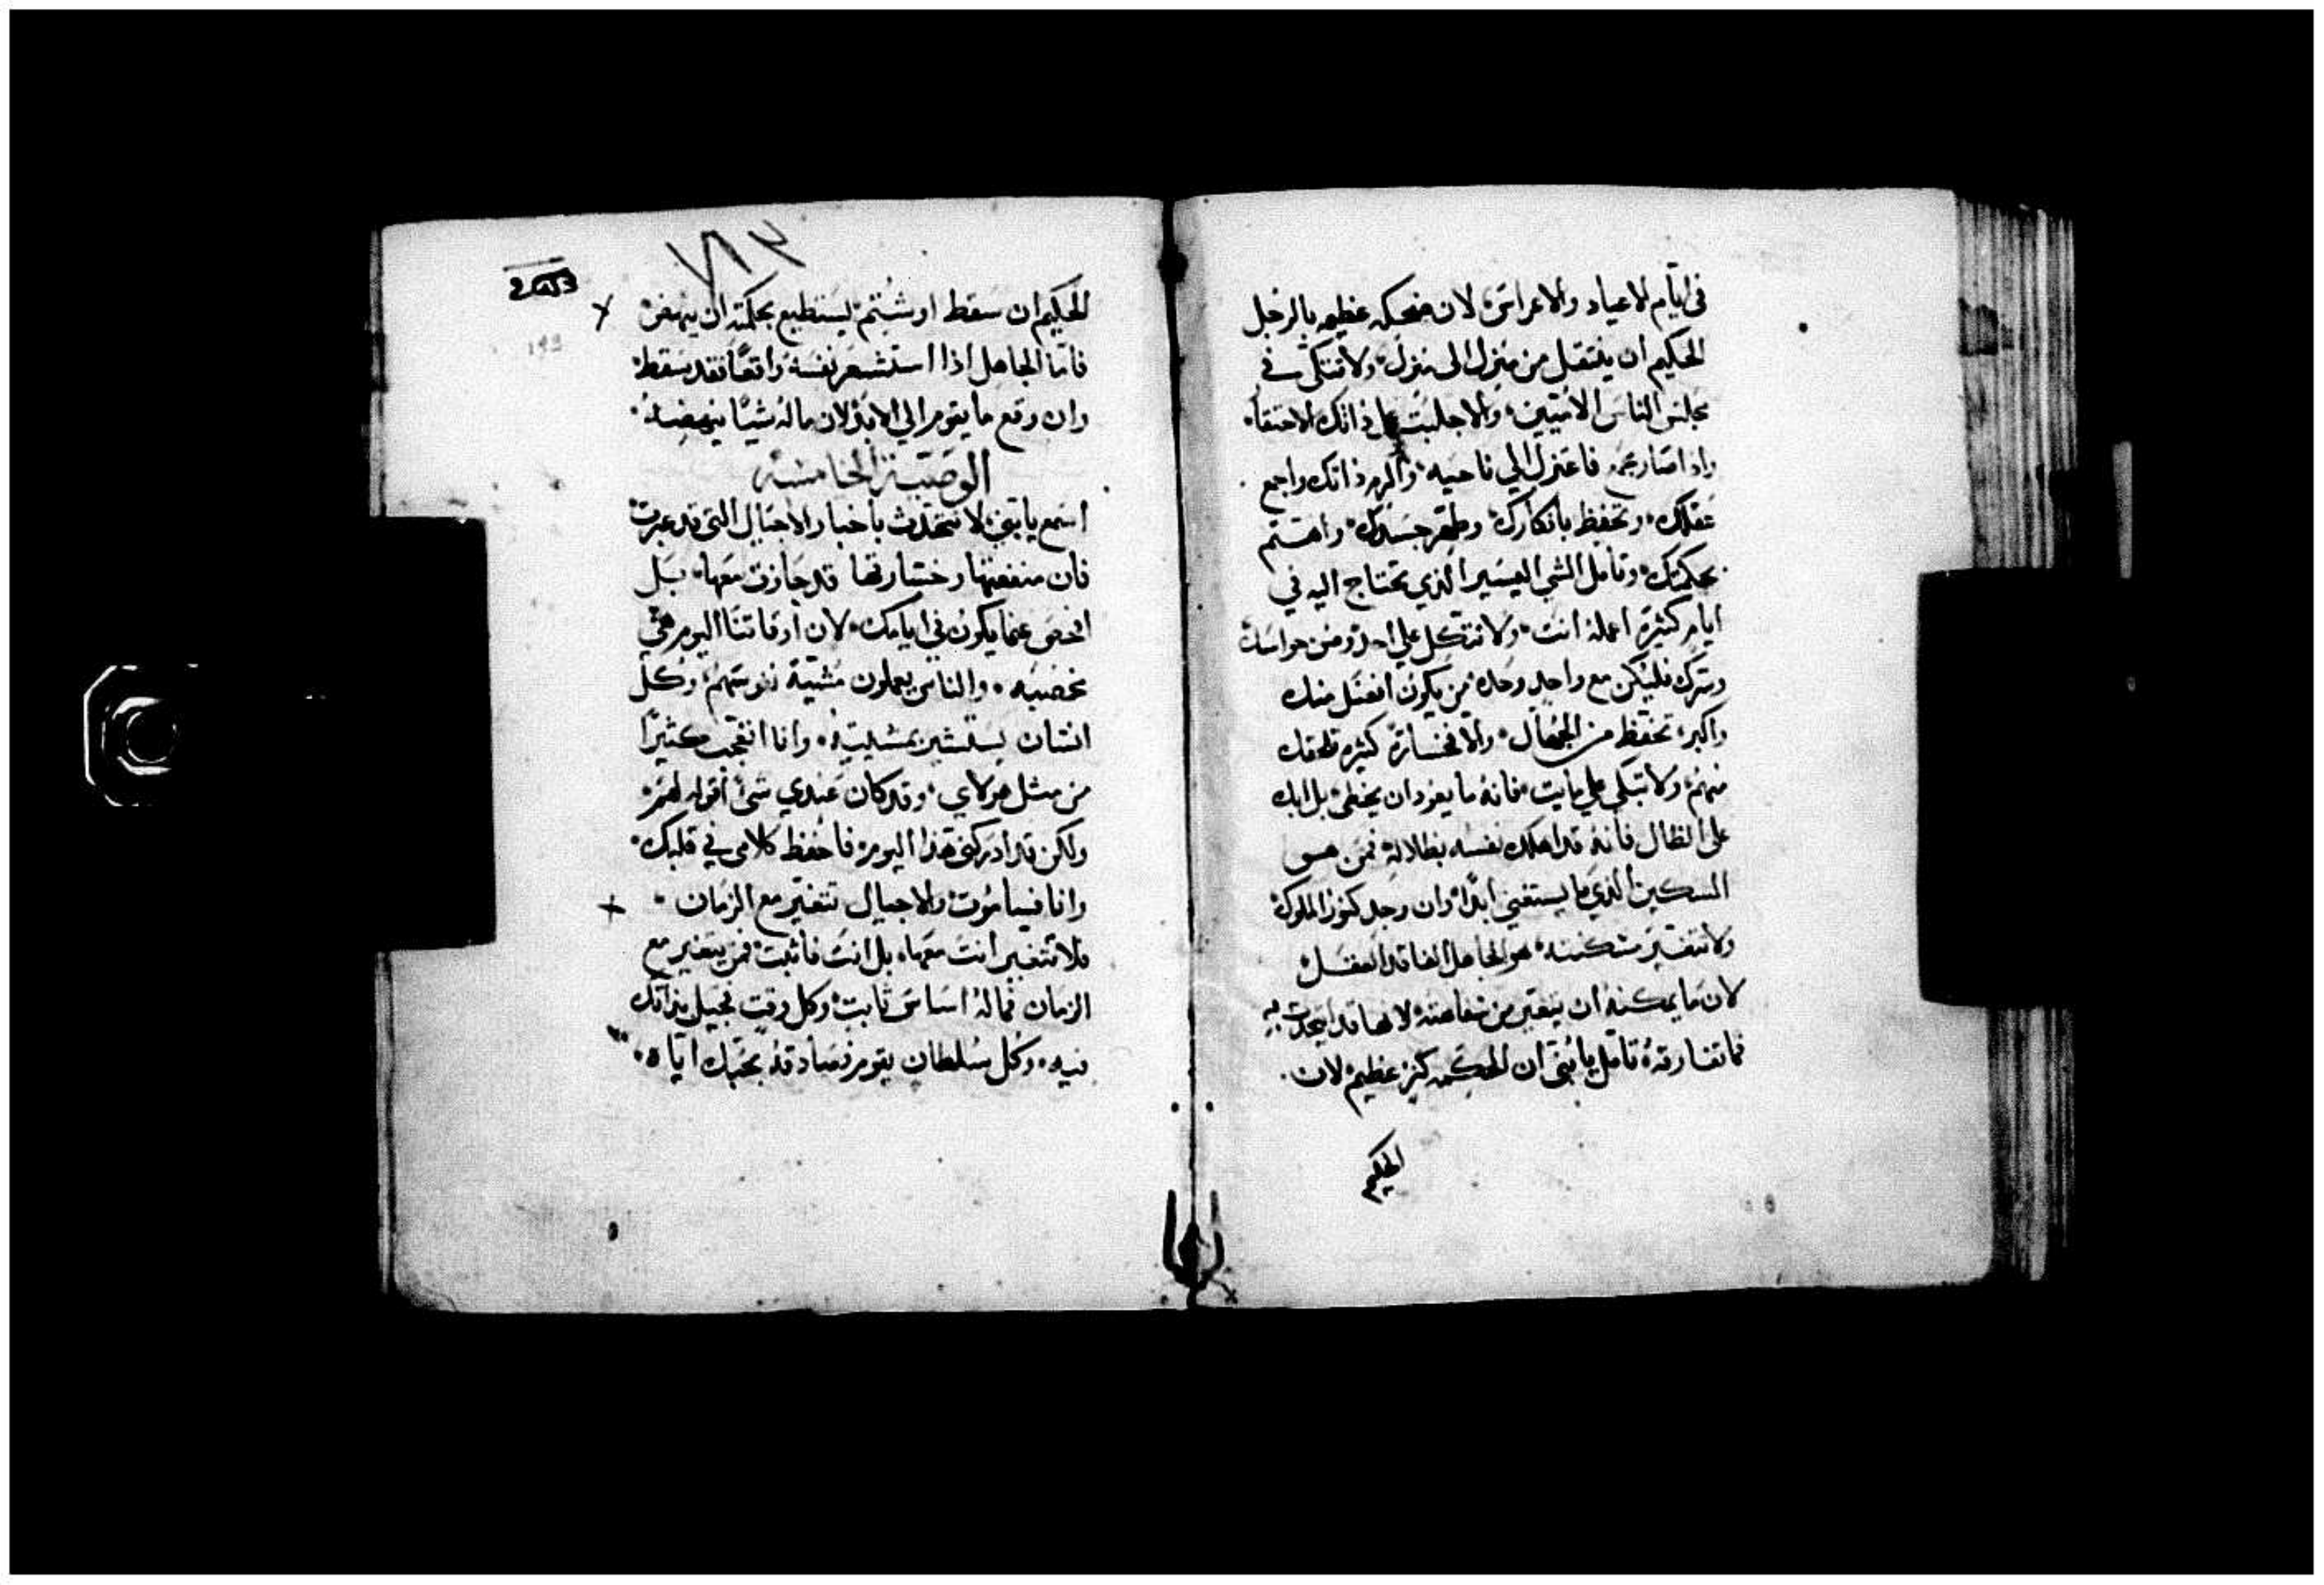 في ايام الاعياد والاعراس لان ضحكه عظيمه بالرجل
الحكيم ان ينتقل من منزل الى منزل ولا تتكى في
مجلس الناس الاثيين والا جلبت على ذاتك الاحتقار
واذا صار عجمه فاعتزل الي ناحيه والزم ذاتك واجمع
عقلك وتحفظ بافكارك وطهر جسدك واهتم
بحكمتك وتامل الشي اليسير الذي تحتاج اليه في
ايام كثيرة اعمله انت ولا تتكل علي احد وصن حواسك
وسرك فليكن مع واحد وحده من يكون افضل منك
واكبر تحفظ من الجهال والا فخسارة كثيره تلحقك
منهم ولا تبكي علي مايت فانه ما يعود ان يخطى بل ابك
على الظال فانه قد اهلك نفسه بظلالته فمن هو
المسكين الذي ما يستغني ابدا وان وجد كنوز الملوك
ولا تتغير مسكنته هو الجاهل الفاقد العقل
لان ما يمكنه ان يتغير من شقاعته لانها قد اتحدت به
فما تفارقه تامل يا بني ان الحكمه كنز عظيم لان
الحكيم
الحكيم ان سقط او شتم يستطيع بحكمته ان ينهض
فاما الجاهل اذا استشعر نفسه واقعا فقد سقط
وان وقع ما يقوم الي الابد لان ماله شيا ينهضه
الوصية الخامسة
اسمع يا بني لا تتحدث باخبار الاجيال التي قد عبرت
فان منفعتها وخسارتها قد جازت معها بل
افحص عما يكون في ايامك لان اوقاتنا اليوم هي
غضبيه والناس يعملون مشية نفوسهم وكل
انسان يستشير بمشيته وانا اتعجب كثيرا
من مثل هولاي وقد كان عندي شي اقوله لهم
ولكن قد ادركني هذا اليوم فاحفظ كلامي في قلبك
وانا فساموت والاجيال تتغير مع الزمان
فلا تتغير انت معها بل انت فاثبت فمن يتغير مع
الزمان فماله اساس ثابت وكل وقت تجيل بذاتك
فيه وكل سلطان يقوم فصادقه بحبك اياه